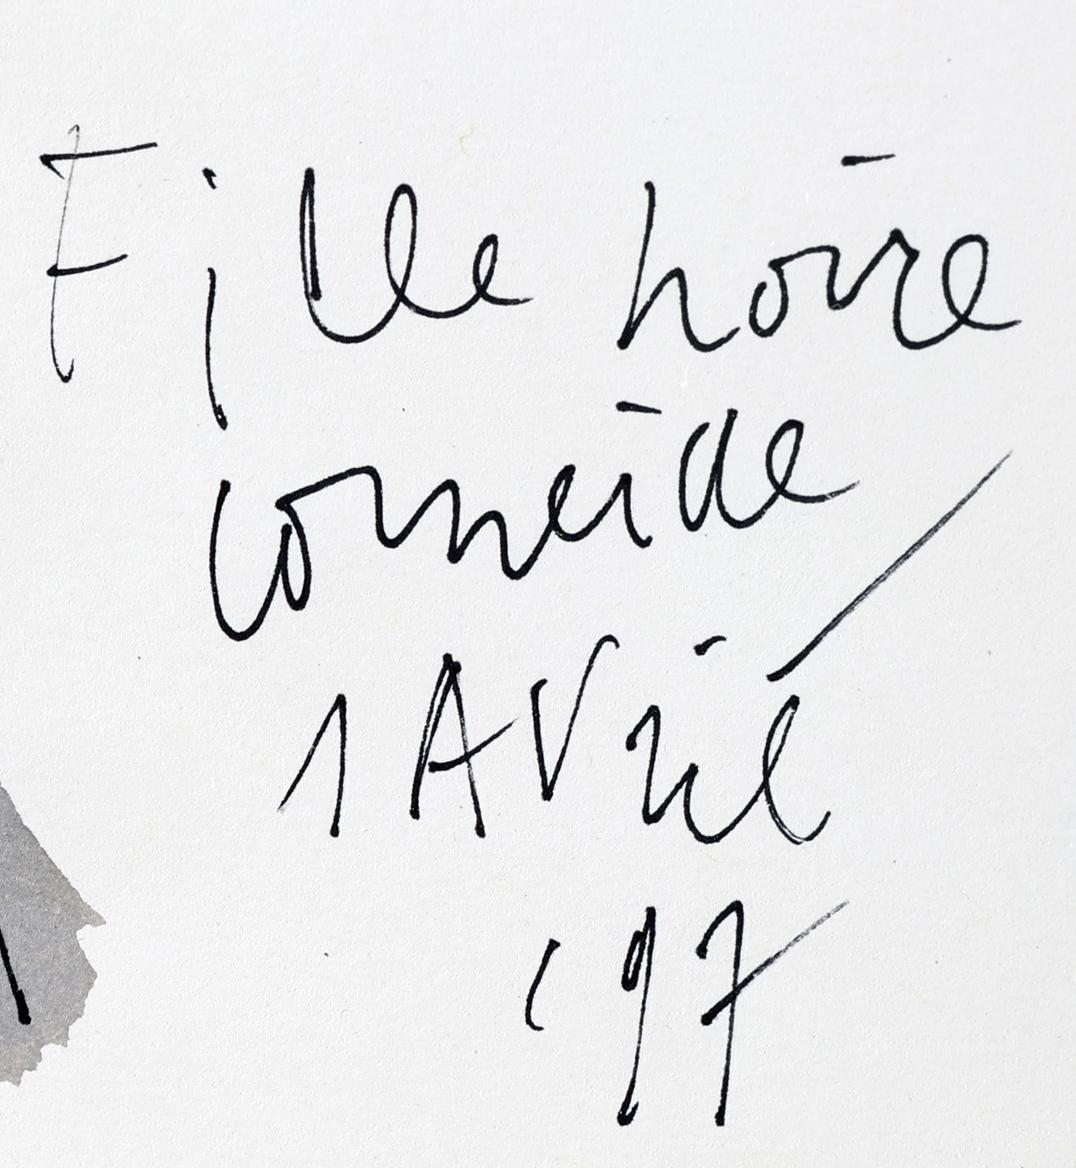 Fille noire
corneille
1 Avril
'97